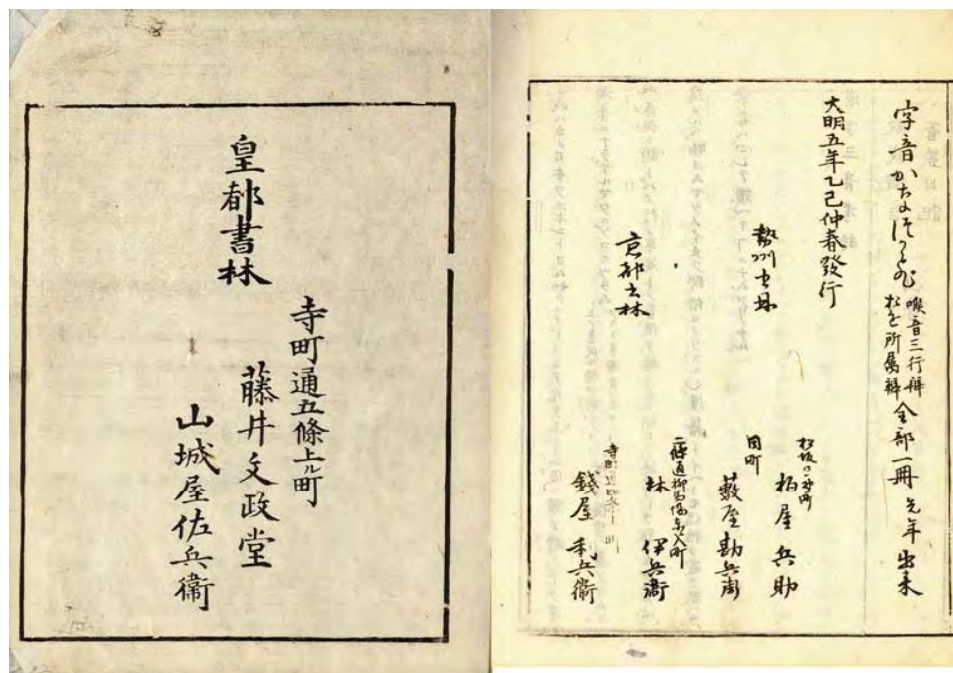 字音かなつかひ
喉音三行辨
おを所属辨
全部一冊 先年出来
天明五年乙巳仲春發行
勢州書林
松坂日野町
柏屋兵助
同町
藪屋勘兵衛
京都書林
二條通柳馬場東入町
林伊兵衛
錢屋利兵衛
皇都書林
寺町通五條上ル町
藤井文政堂
山城屋佐兵衛